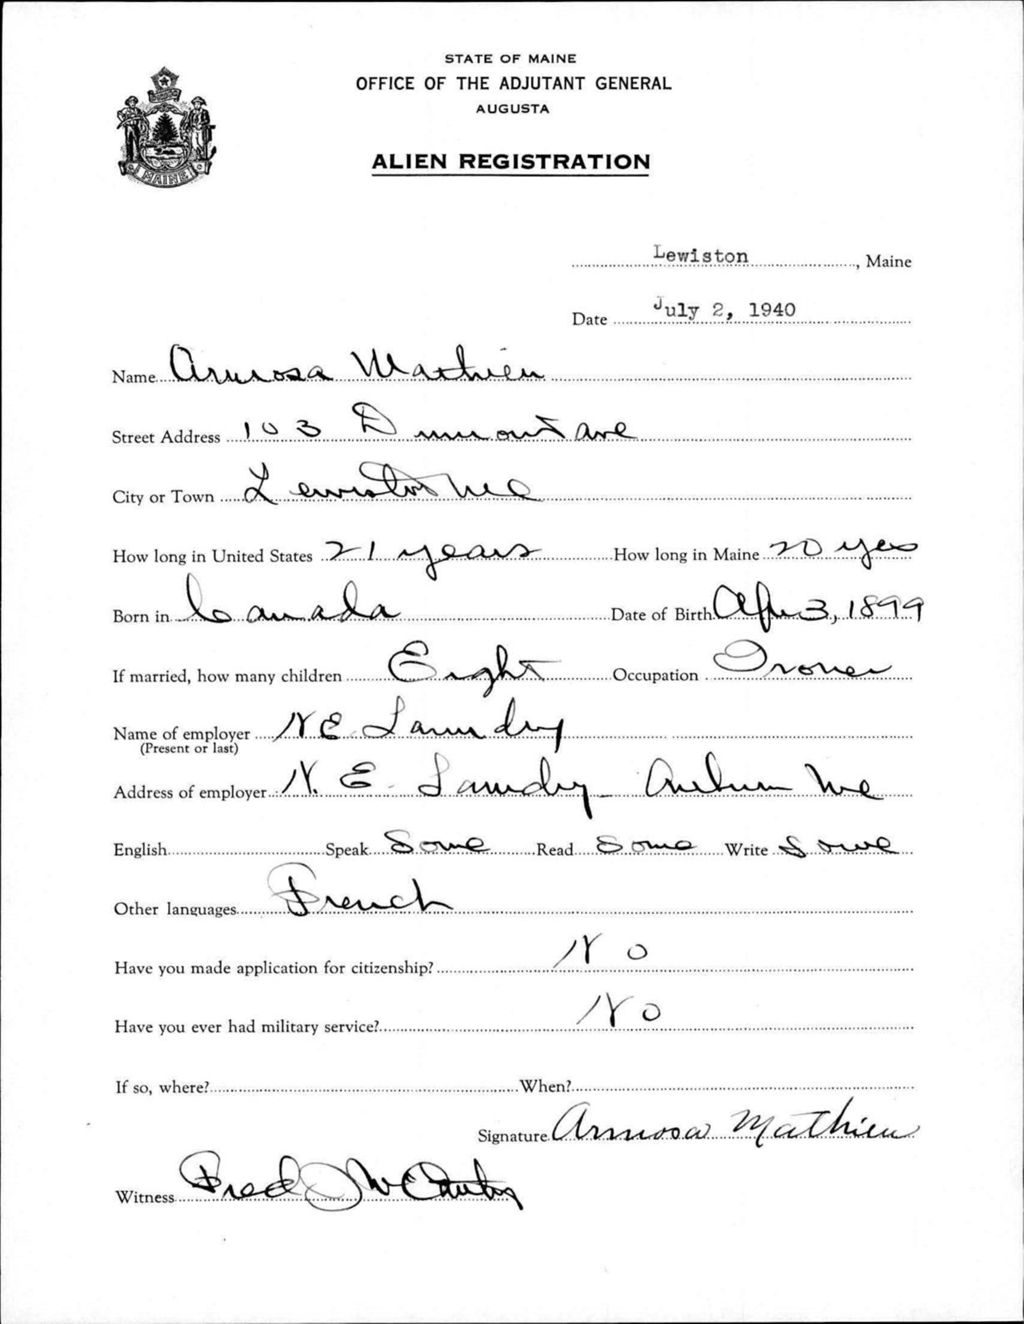 STATE OF MAINE
OFFICE OF THE ADJUTANT GENERAL
AUGUSTA
ALIEN REGISTRATION
MAINE
Lewiston, Maine
Date July 2, 1940
Name Armosa Mathieu
Street Address 103 Dumont ave
City or Town Lewiston Me
How long in United States 21 years How long in Maine 20 yes
Born in Canada Date of Birth Apr 3, 1899
If married, how many children Eight Occupation Ironer
Name of employer N E. Laundry
(Present or last)
Address of employer N. E. Laundry - Auburn Me
English Speak Some Read Some Write Some
Other languages French
Have you made application for citizenship? No
Have you ever had military service? No
If so, where? When?
Signature Armosa Mathieu
Witness Fred J McCarthy